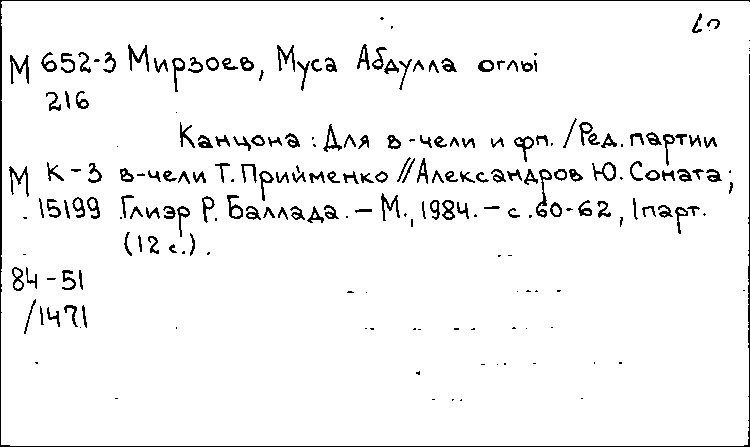 М 652-3 Мирзоев, Муса Абдулла оглы
216
Канцона: Для в-чели и фп. /Ред. партии
М К-3 в-чели Т. Прийменко // Александров Ю. Соната;
15199 Глиэр Р. Баллада. – М., 1984. – с. 60-62, 1парт.
(12 с.).
84-51
/1471